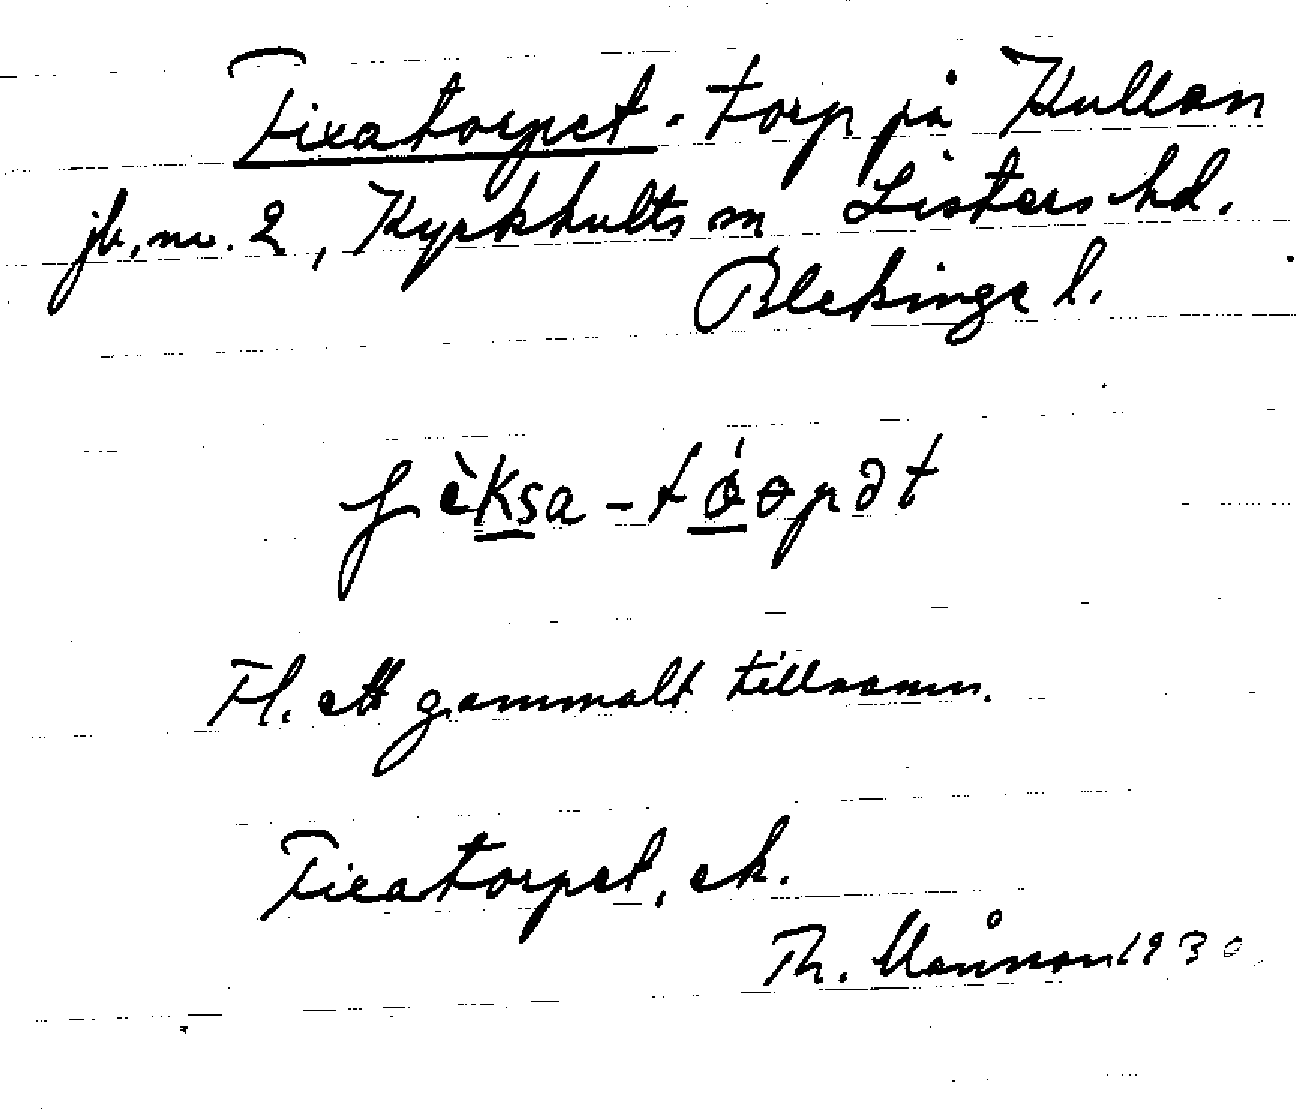 Fixatorpet. torp på Kullan
jb. nr. 2, Kyrkhults sn Listers hd.
Blekinge l.
fèksa-tóopət
Fl. ett gammalt tillnamn.
Fixatorpet, ek.
Th. 1930